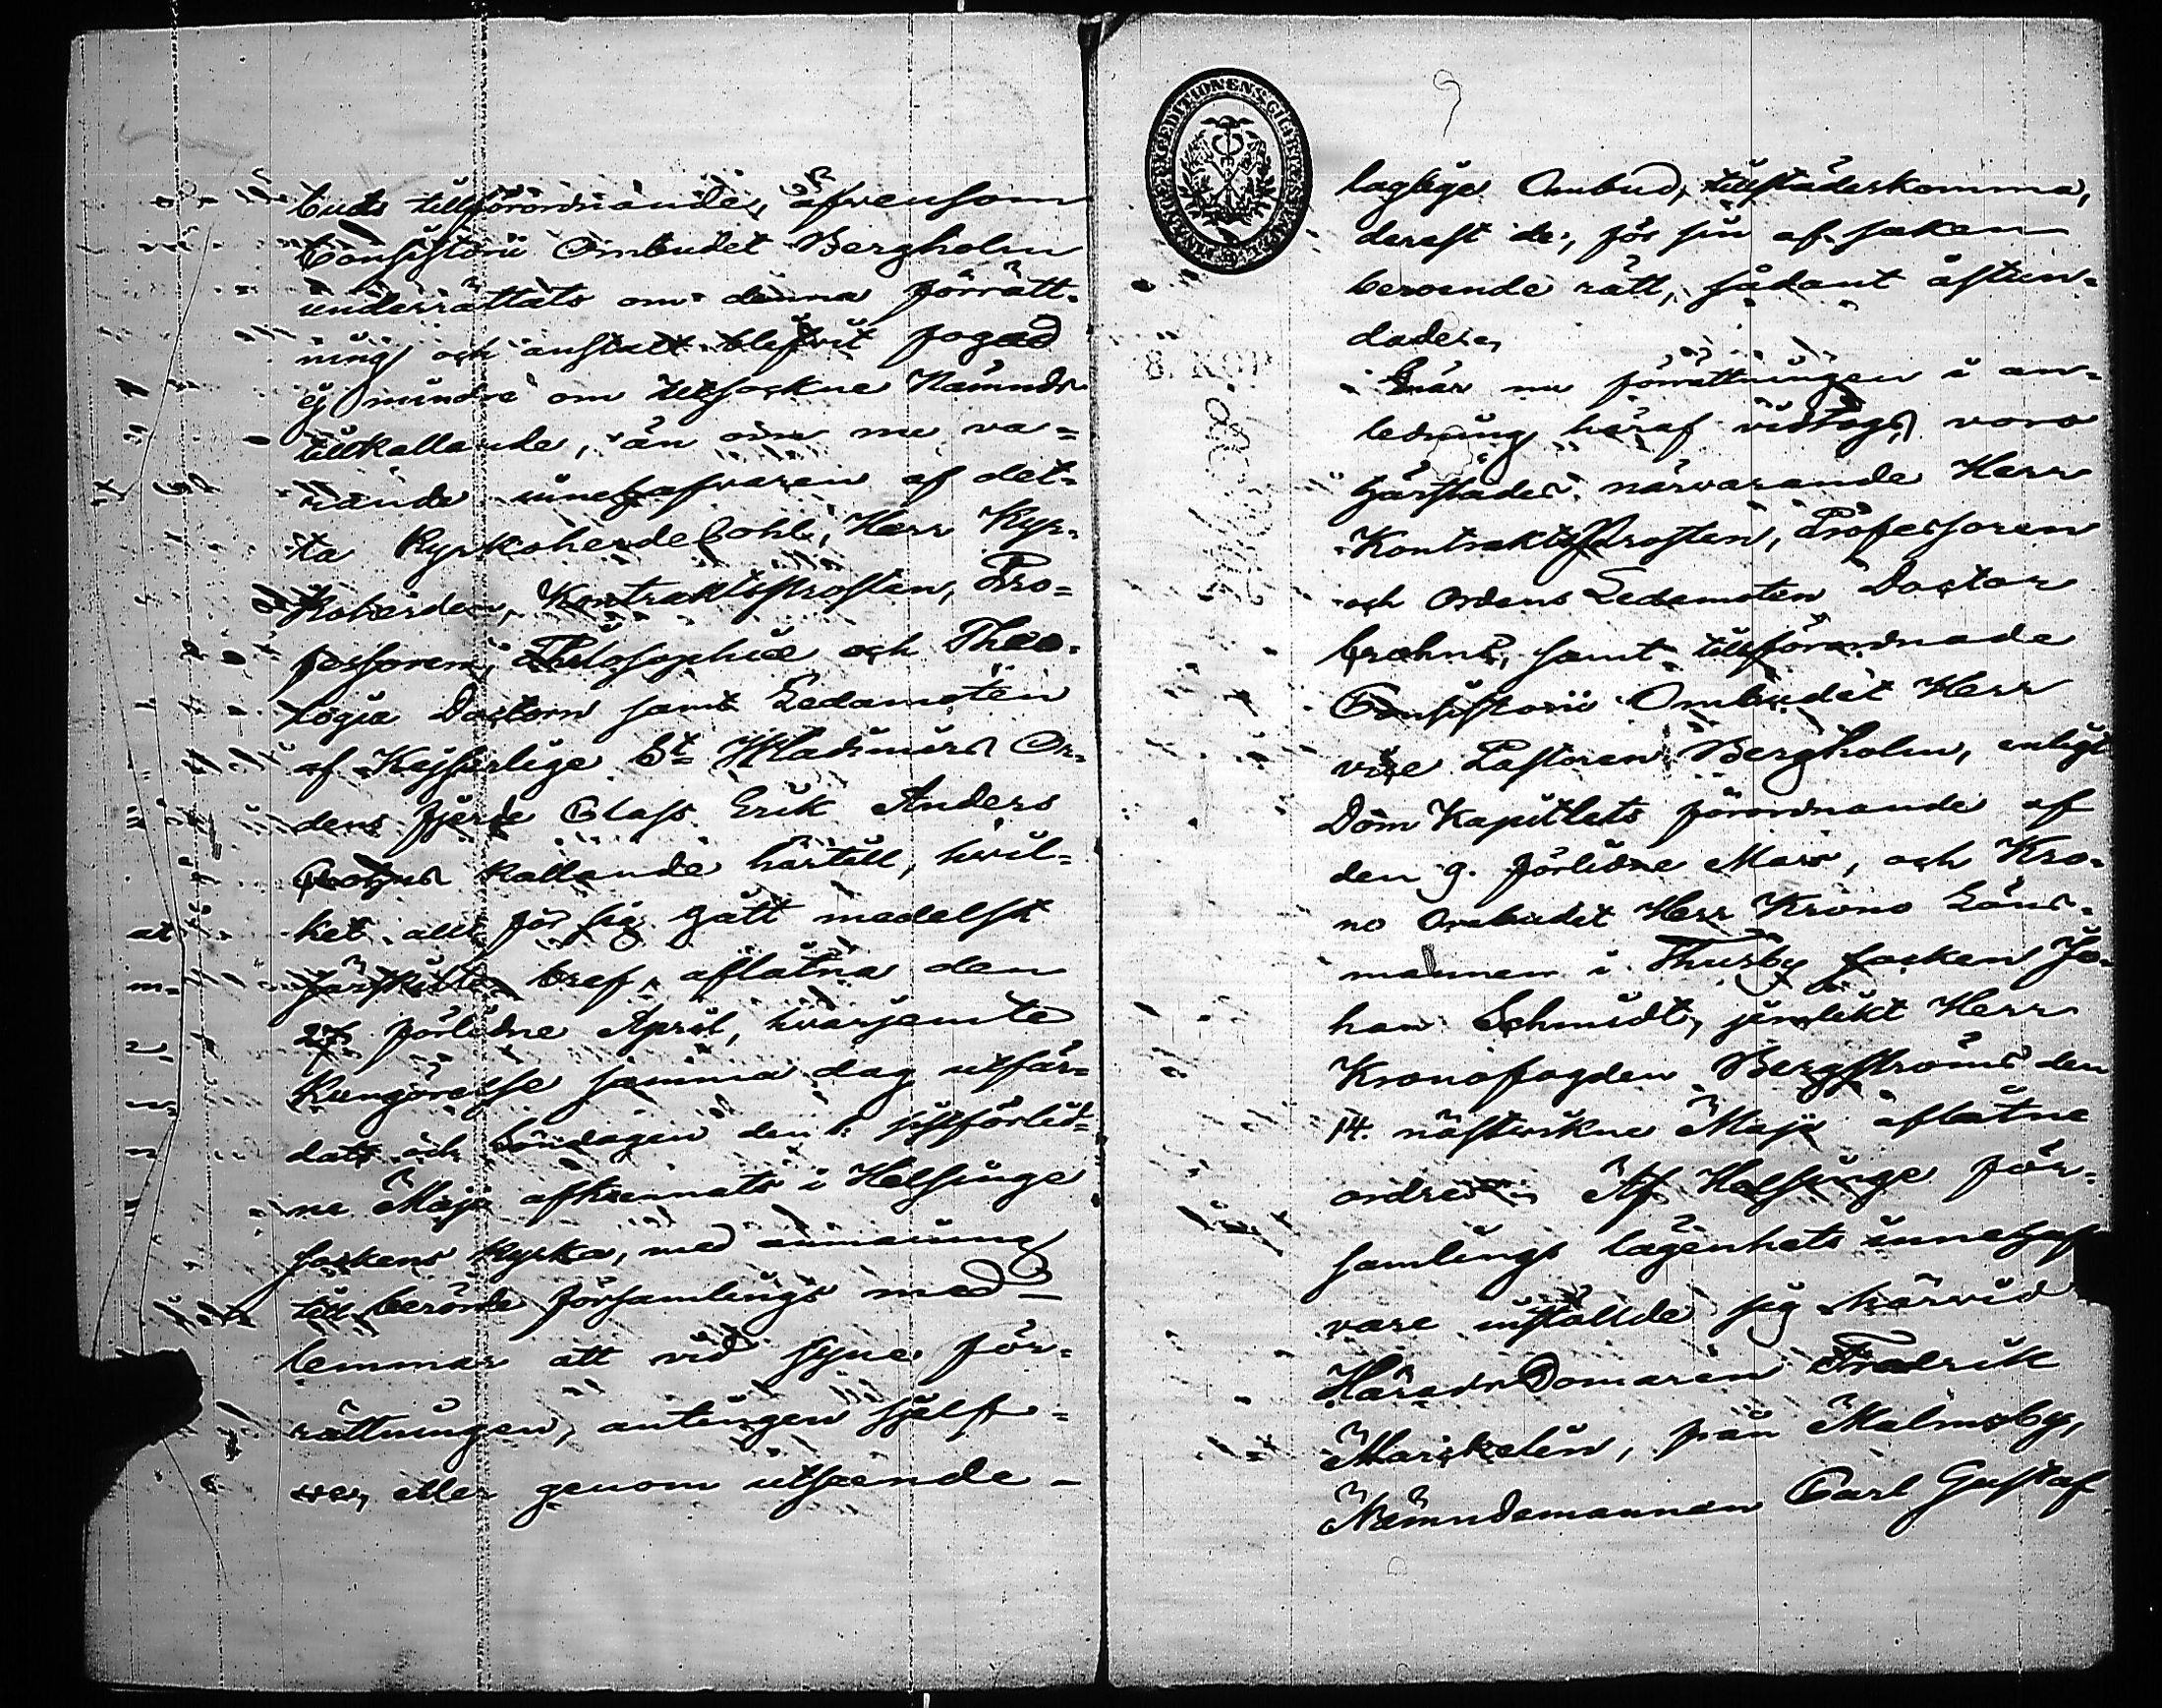 buds tillförordnande, äfvensom
Consistorii Ombudet Bergholm
underrättats om denna förrätt-
ning och anstalt blifvit fogad
ej mindre om Nämnds
tillkallande, än om nu va-
rande innehafvaren af det-
ta Kyrkoherde Bohl, Herr Kyr-
koherden, Kontraktsprosten, Pro-
fessoren, Philosophiæ och Theo-
logiæ Doctorn samt Ledamoten
af Kejserliga St Wladimirs Or-
dens fjerde Class Erik Anders
Crohns kallande härtill, hvil-
ket allt för sig gått medelst
särskilte bref, aflåtna den
27 förlidne April, hvarjemte
Kungörelse samma dag utfär-
dats och Söndagen den 1. sistförlid-
ne Maji afkunnats i Helsinge
sockens kyrka, med anmaning
till berörde församlings med-
lemmar att vid syne för-
rättningen, antingen sjelf-
ve, eller genom utseende
laglige Ombud, tillstädeskomma,
derest de, för sin af saken
beroende rätt, sådant åstun-
dade.
När nu förrättningen i an-
ledning häraf vidtogs, voro
härstädes närvarande Herr
Kontraktsprosten, Professoren
och Ordens Ledamoten Doctor
Crohns, samt tillförordnade
Consistorii Ombudet Herr
vice Pastoren Bergholm, enligt
Dom Kapitlets förordnande af
den 9. förlidne Mars, och Kro-
no Ombudet Herr Krono Läns-
mannen i Thusby socken Jo-
han Schmidt, jemlikt Herr
Kronofogden Bergströms den
14. nästvikne Maji aflåtne
ordres. Af Helsinge för-
samlings lägenhets innehaf
vare inställde sig härvid
HäradsDomaren Fredrik
Marskelin, från Malmsby,
Nämndemannen Carl Gustaf